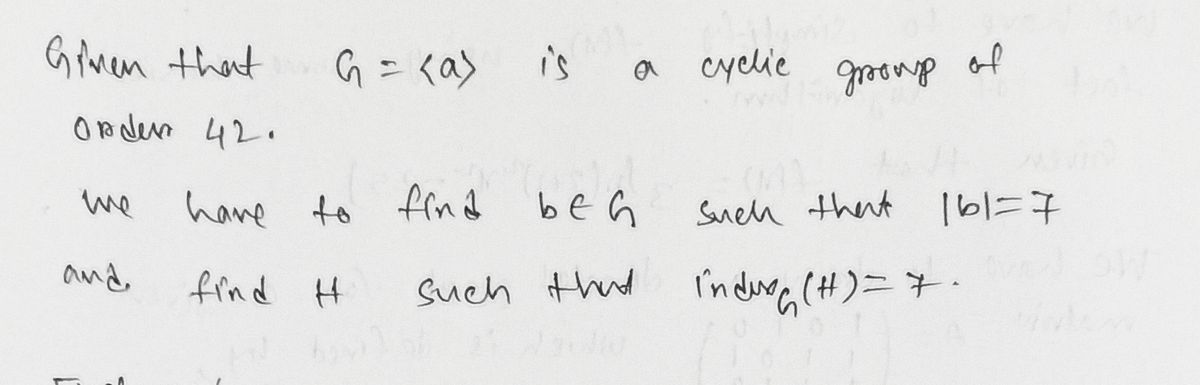 Given that G = <a> is a cyclic group of
order 42.
We have to find b ∈ G such that |b| = 7
and find H such that index_G (H) = 7.